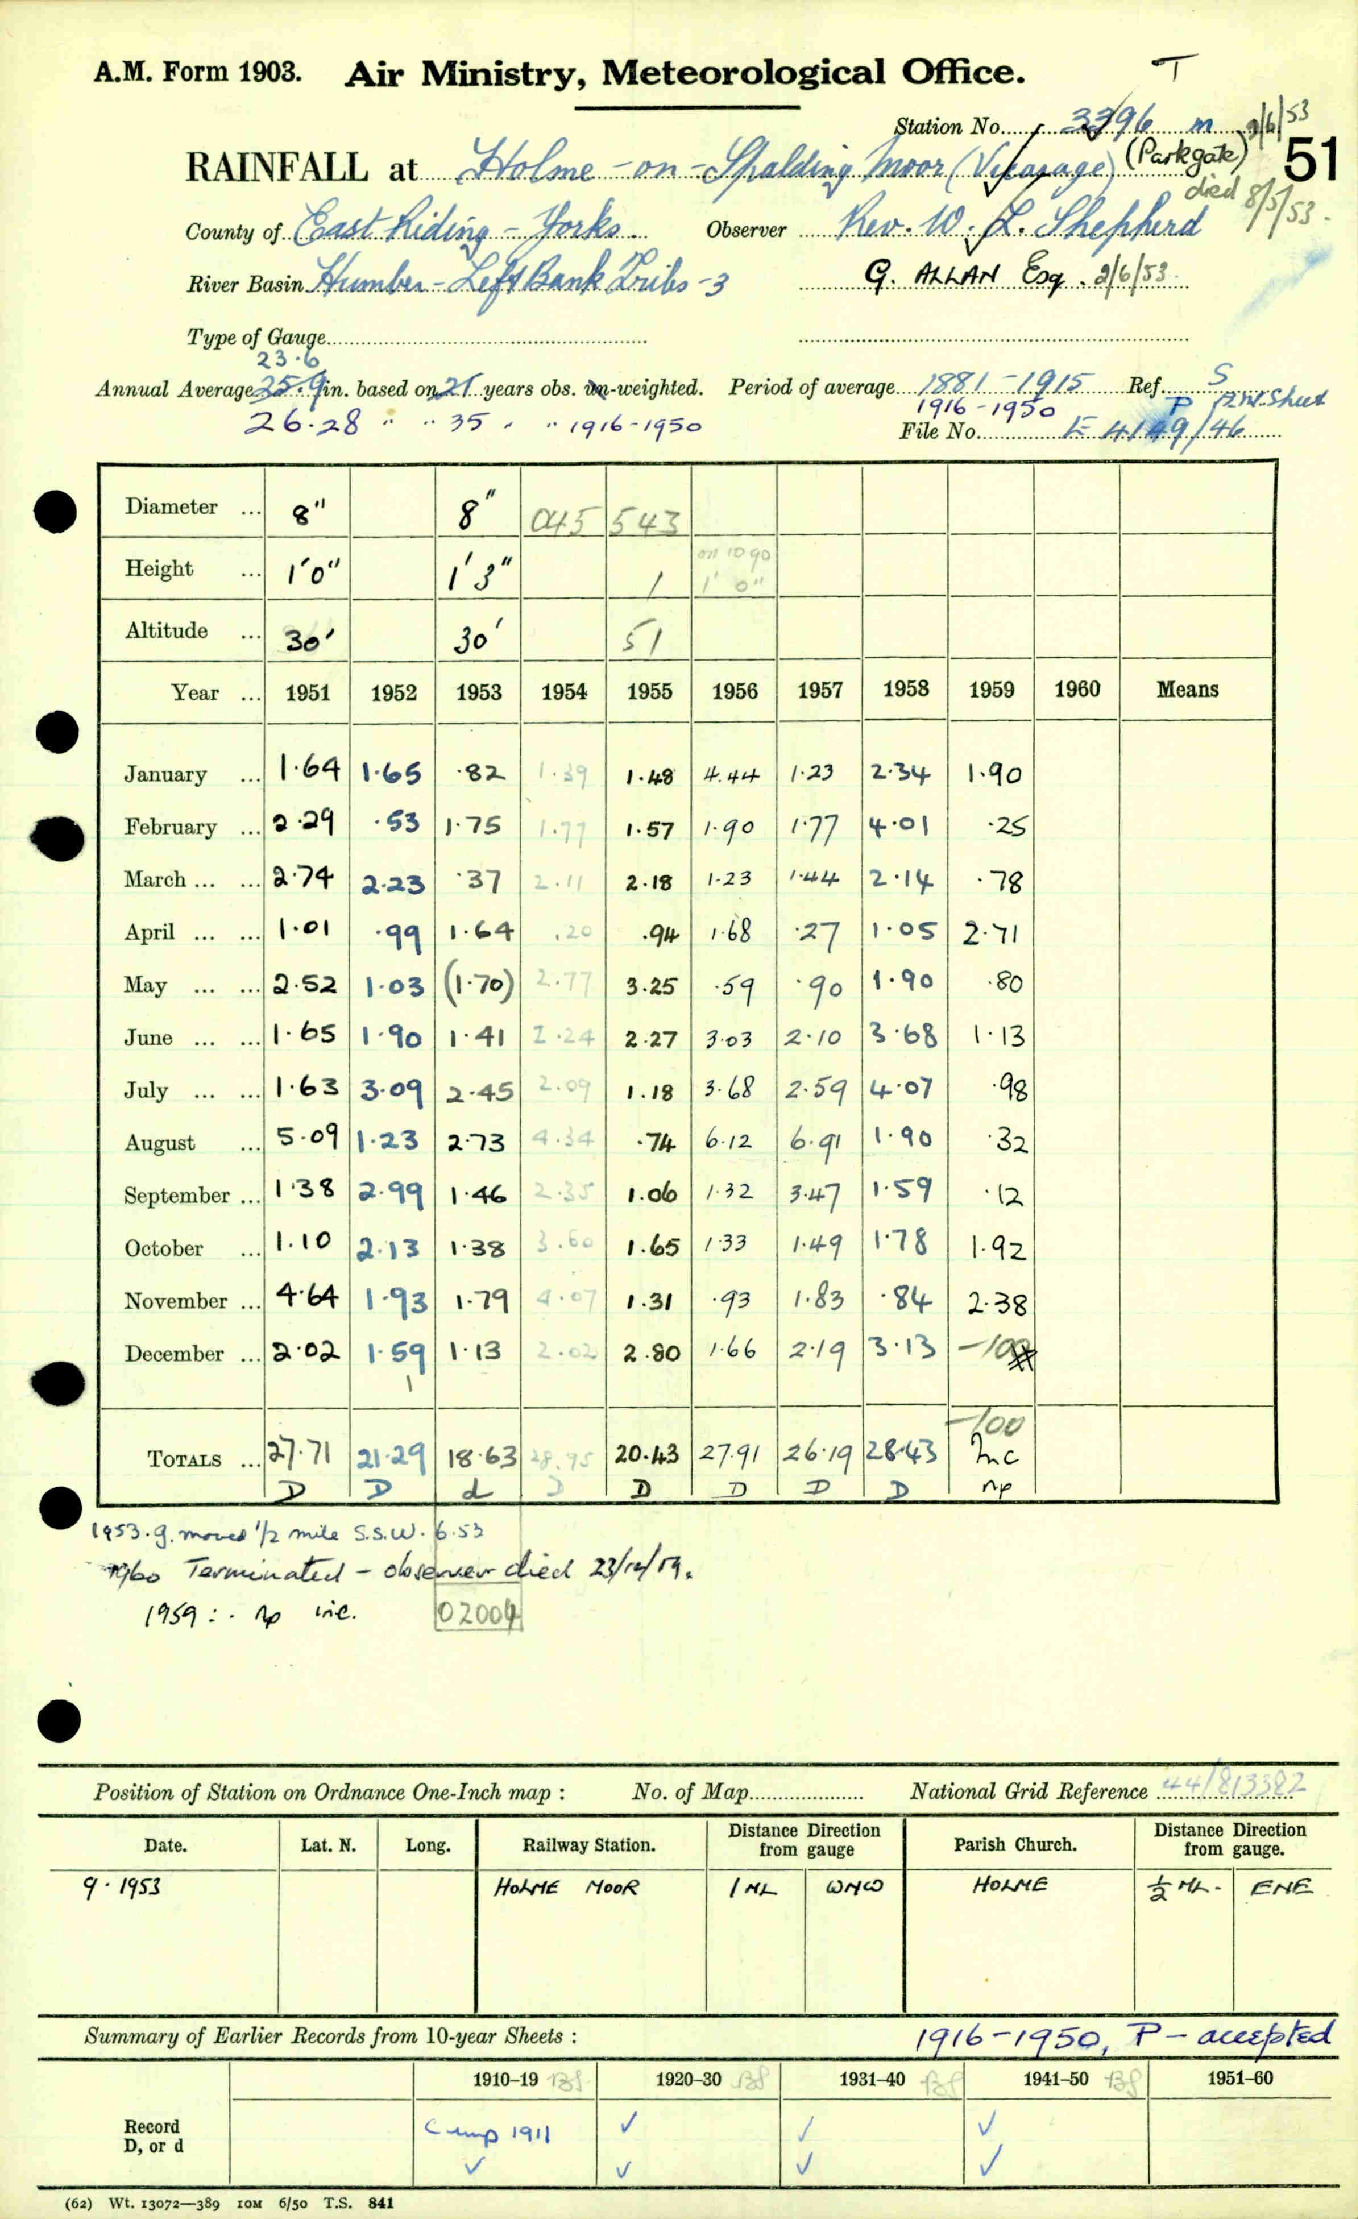 A.M. Form 1903. Air Ministry, Meteorological Office. T
Station No. 3396 m 2/6/53
RAINFALL at Holme-on-Spalding Moor (Vicarage) (Parkgate) 51
died 8/5/53.
County of East Riding - Yorks. Observer Rev. W. L. Shepherd
River Basin Humber - Left Bank Tribs - 3 G. ALLAN Esq. 2/6/53.
Type of Gauge
23.6
Annual Average 25.9 in. based on 21 years obs. un-weighted. Period of average 1881-1915 Ref. S
1916-1950
26.28 " " 35 " " 1916-1950
File No. E 4149/46
Diameter ... 8" 8" 045 543
Height ... 1'0" 1'3" 1 1' 0"
Altitude ... 30' 30' 51
Year ... 1951 1952 1953 1954 1955 1956 1957 1958 1959 1960 Means
January ... 1.64 1.65 .82 1.39 1.48 4.44 1.23 2.34 1.90
February ... 2.29 .53 1.75 1.77 1.57 1.90 1.77 4.01 .25
March ... ... 2.74 2.23 .37 2.11 2.18 1.23 1.44 2.14 .78
April ... ... 1.01 .99 1.64 .20 .94 1.68 .27 1.05 2.71
May ... ... 2.52 1.03 (1.70) 2.77 3.25 .59 .90 1.90 .80
June ... ... 1.65 1.90 1.41 2.24 2.27 3.03 2.10 3.68 1.13
July ... ... 1.63 3.09 2.45 2.09 1.18 3.68 2.59 4.07 .98
August ... 5.09 1.23 2.73 4.34 .74 6.12 6.91 1.90 .32
September ... 1.38 2.99 1.46 2.35 1.06 1.32 3.47 1.59 .12
October ... 1.10 2.13 1.38 3.60 1.65 1.33 1.49 1.78 1.92
November ... 4.64 1.93 1.79 4.07 1.31 .93 1.83 .84 2.38
December ... 2.02 1.59 1.13 2.02 2.80 1.66 2.19 3.13 -100
1
-100
TOTALS ... 27.71 21.29 18.63 28.95 20.43 27.91 26.19 28.43 Inc
D D d D D D D D np
1953. g. moved 1/2 mile S.S.W. 6.53
1960 Terminated - observer died 23/12/59.
1959 :- np inc. 02004
Position of Station on Ordnance One-Inch map : No. of Map National Grid Reference 44/813382
Date. Lat. N. Long. Railway Station. Distance Direction from gauge Parish Church. Distance Direction from gauge.
9.1953 HOLME MOOR 1 ML WNW HOLME ½ ML. ENE
Summary of Earlier Records from 10-year Sheets : 1916-1950, P - accepted
1910-19 1920-30 1931-40 1941-50 1951-60
Record
D, or d
Comp 1911 ✓ ✓ ✓
✓ ✓ ✓ ✓
(62) Wt. 13072—389 10M 6/50 T.S. 841